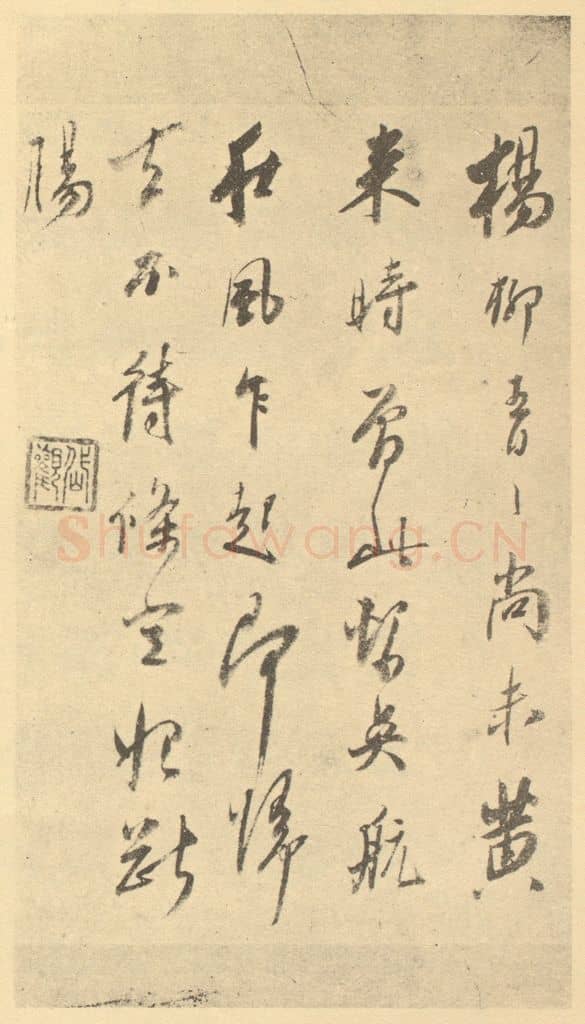 楊柳青〻尚未黃
来時曾此吳航
秋風乍起即歸
去不待條空恨斷
腸
Shufawang.CN